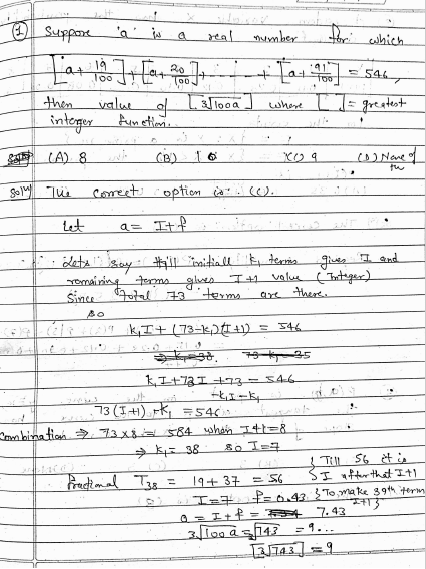 ① Suppose 'a' is a real number for which
[a+19/100]+[a+20/100]+......+[a+91/100] = 546,
then value of [3√100a] where [ ] = greatest
integer function.
(A) 8 (B) 10 (C) 9 (D) None of the
Solⁿ The correct option is (C).
Let a = I+f
Lets say till initial k₁ terms gives I and
remaining terms gives I+1 value (Integer)
Since total 73 terms are there.
so
k₁I + (73-k₁)(I+1) = 546
⇒ k₁=38. 73-k₁=35
k₁I+73I+73 = 546
-k₁I-k₁
73(I+1)-k₁ = 546
Combination ⇒ 73×8 = 584 when I+1=8
⇒ k₁ = 38 so I=7
Fractional T₃₈ = 19+37 = 56 {Till 56 it is
I after that I+1
I=7 f=0.43 {To make 39th term
I+1}
a = I+f = 7.43
3√100a = 3√743 = 9...
[3√743] = 9